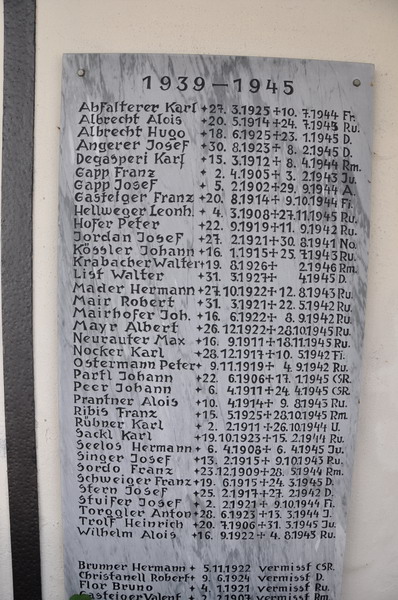 1939 – 1945
Abfalterer Karl +27. 3.1925 +10. 7.1944 Fr.
Albrecht Alois +20. 5.1914 +24. 7.1943 Ru.
Albrecht Hugo +18. 6.1925 +23. 1.1945 D.
Angerer Josef +30. 8.1923 + 8. 2.1945 D.
Degasperi Karl +15. 3.1912 + 8. 4.1944 Rm.
Gapp Franz + 2. 4.1905 + 3. 2.1943 Ju.
Gapp Josef + 5. 2.1902 +29. 9.1944 A.
Gasteiger Franz +20. 8.1914 + 9.10.1944 Fi.
Hellweger Leonh. + 4. 3.1908 +27.11.1945 Ru.
Hofer Peter +22. 9.1919 +11. 9.1942 Ru.
Jordan Josef +27. 2.1921 +30. 8.1941 No.
Kössler Johann +16. 1.1915 +25. 7.1943 Ru.
Krabacher Walter +19. 8.1926 + 2.1946 Rm.
List Walter +31. 3.1927 + 4.1945 D.
Mader Hermann +27.10.1922 +12. 8.1943 Ru.
Mair Robert +31. 3.1921 +22. 5.1942 Ru.
Mairhofer Joh. +16. 6.1922 + 8. 9.1942 Ru.
Mayr Albert +26.12.1922 +28.10.1945 Ru.
Neurauter Max +16. 9.1911 +18.11.1945 Ru.
Nocker Karl +28.12.1917 +10. 5.1942 Fi.
Ostermann Peter + 9.11.1919 + 4. 9.1942 Ru.
Partl Johann +22. 6.1906 +17. 1.1945 CSR.
Peer Johann + 6. 4.1911 +24. 4.1945 CSR.
Prantner Alois +10. 4.1914 + 9. 8.1943 Ru.
Ribis Franz +15. 5.1925 +28.10.1945 Rm.
Rübner Karl + 2. 2.1911 +26.10.1944 U.
Sackl Karl +19.10.1923 +15. 2.1944 Ru.
Seelos Hermann + 6. 4.1908 + 6. 4.1945 Ju.
Singer Josef +13. 2.1915 + 9.10.1943 Ru.
Sordo Franz +23.12.1909 +28. 5.1944 Rm.
Schweiger Franz +19. 6.1915 +24. 3.1945 D.
Stern Josef +25. 2.1917 +27. 2.1942 D.
Stuifer Josef + 2. 2.1921 + 9.10.1944 Fi.
Torggler Anton +28. 6.1923 +13. 3.1944 J.
Trolf Heinrich +20. 7.1906 +31. 3.1945 Ju.
Wilhelm Alois +16. 9.1922 + 4. 8.1943 Ru.
Brunner Hermann + 5.11.1922 vermisst CSR.
Christanell Robert + 9. 6.1924 vermisst D.
Flor Bruno + 4. 1.1921 vermisst Ru.
Gasteiger Valent. + 2. 2.1907 vermisst Rm.